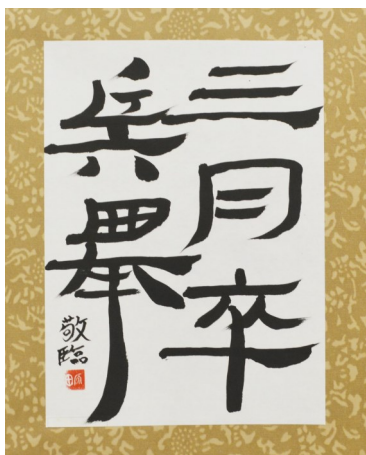 三月卒
兵舉
敬臨